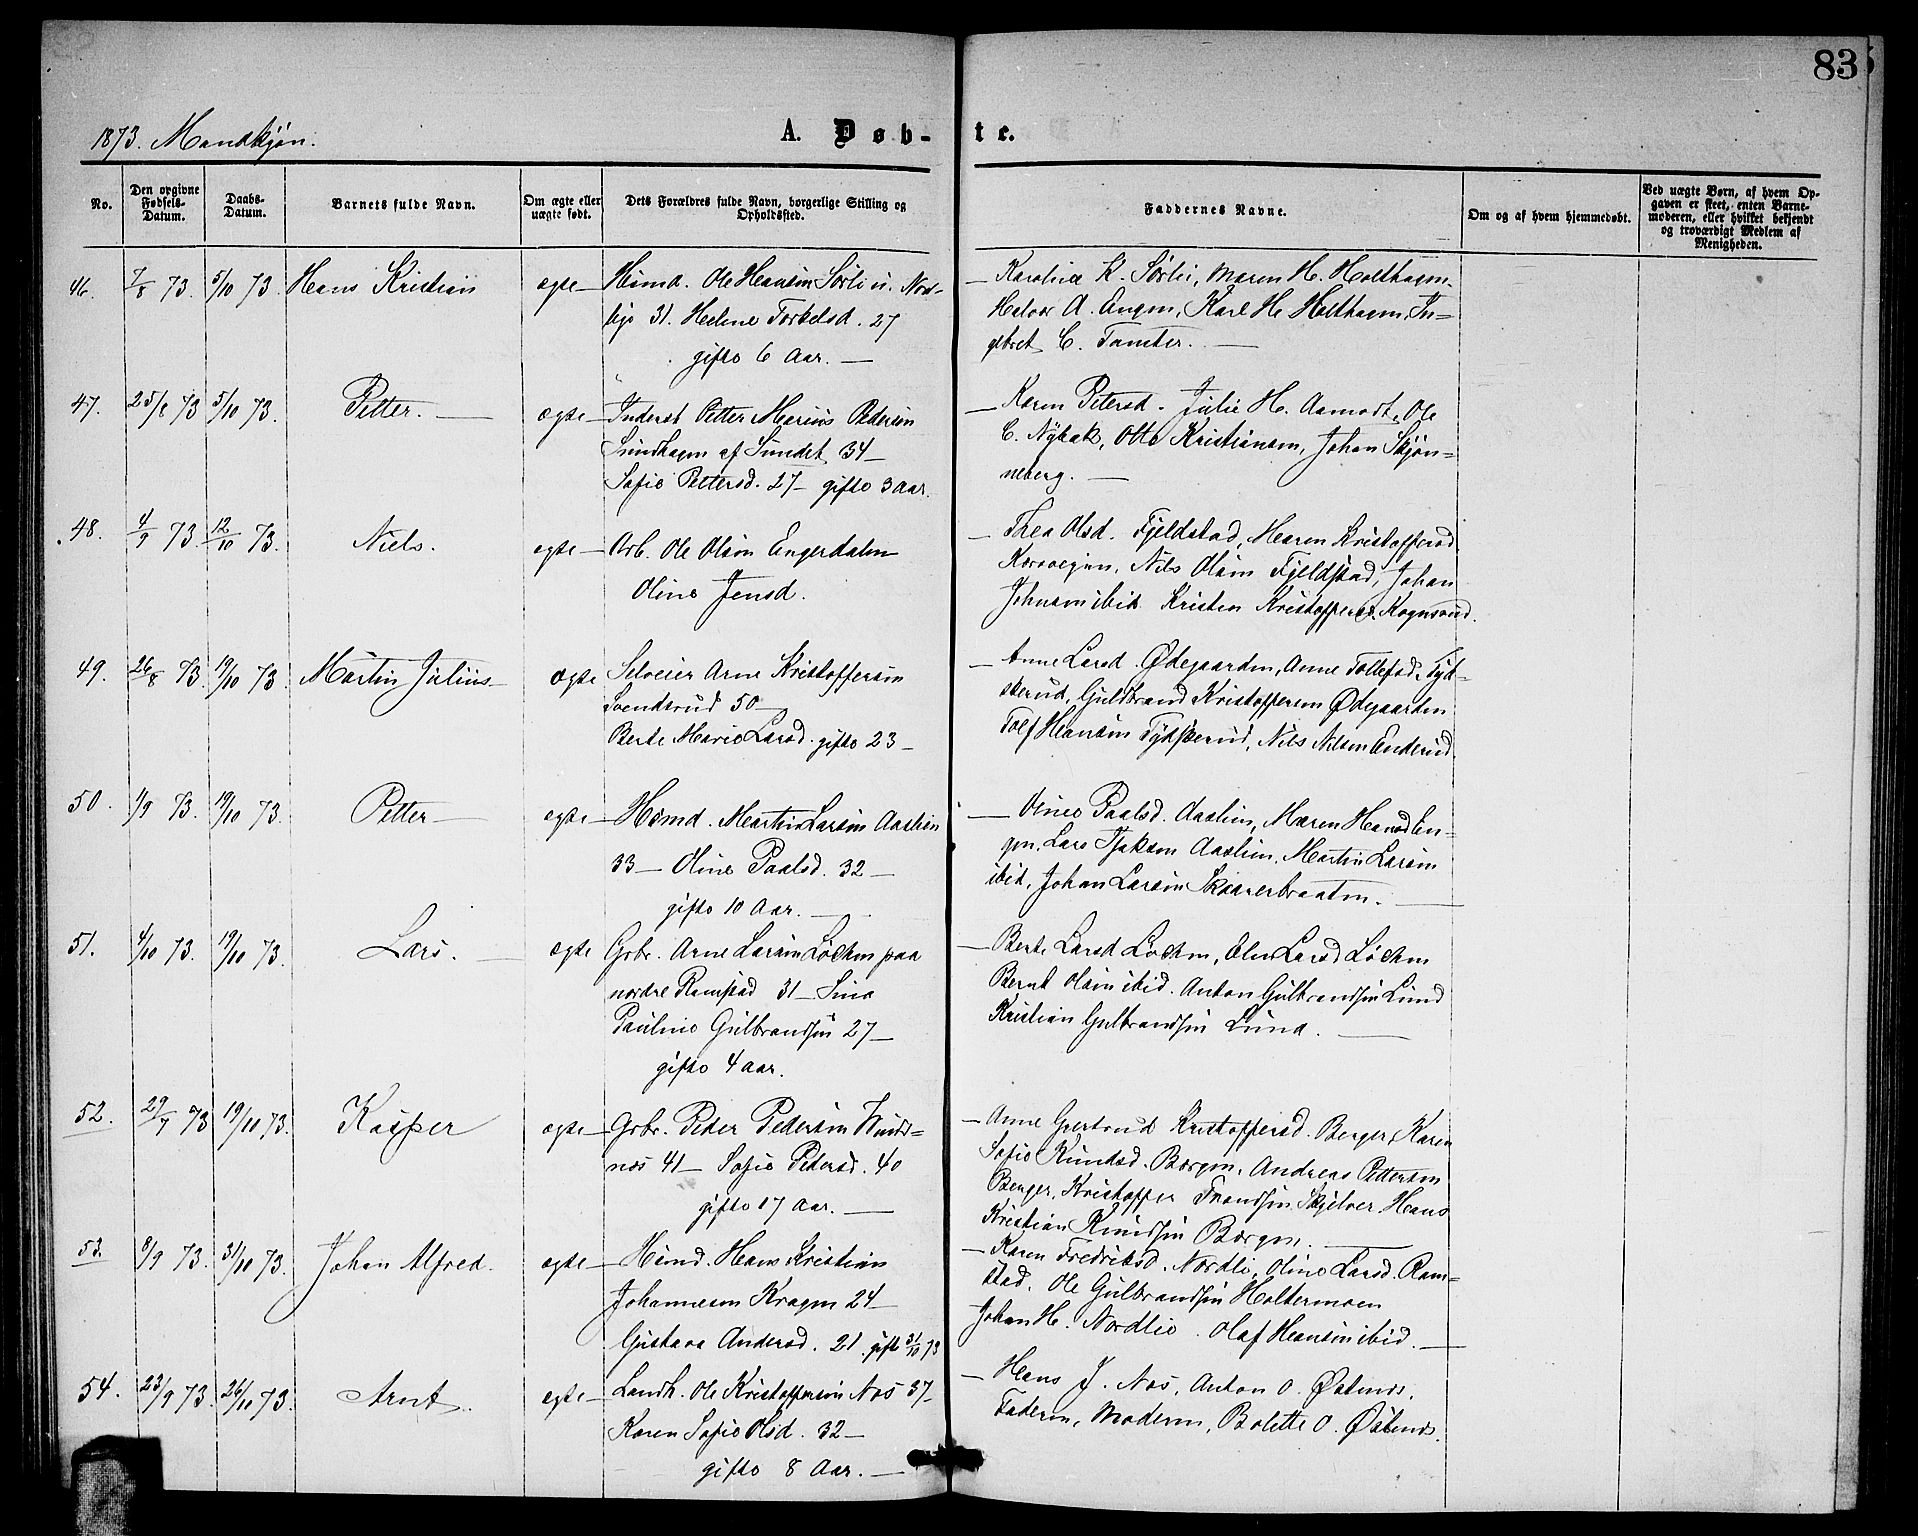 83
1873. Mandkjøn.
A. Døb-
te.
No.
Den opgivne Fødsels-Datum.
Daabs-Datum.
Barnets fulde Navn.
Om ægte eller uægte født.
Dets Forældres fulde Navn, borgerlige Stilling og Opholdssted.
Faddernes Navne.
Om og af hvem hjemmedøbt.
Ved uægte Børn, af hvem Opgaven er skeet, enten Barnemoderen, eller hvilket bekjendt og troværdigt Medlem af Menigheden.
46. 7/8 73. 5/10 73. Hans Kristian ægte — Hsmd. Ole Hansen Sørli u. Nor-
31. Helene Torkelsd. 27
gifte 6 Aar. —
— Karoline K. Sørli, Maren H. Holthagen
Halvor A. Engen, Karl H. Holthagen, In-
gebret C. Tamter. —
47. 25/8 73 5/10 73. Petter. — ægte — Inderst Petter Marius Pedersen
Sundhagen af Sundet 34 —
Sofie Pettersd. 27 — gifte 3 Aar.
— Karen Petersd. Julie H. Aamodt, Ole
C. Nybak, Otto Kristiansen, Johan Skjøn-
neberg. —
48. 4/9 73. 12/10 73. Niels. ægte — Arb. Ole Olsen Engerdalen
Oline Jensd.
— Thea Olsd. Fjeldstad, Maren Kristoffersd
Nils Olsen Fjeldstad, Johan
Johnsen ibid. Kristen Kristoffersen
49. 26/8 73. 19/10 73. Martin Julius — ægte Selveier Arne Kristoffersen
Svendsrud 50 —
Berte Marie Larsd. gifte 23 —
— Anne Larsd. Ødegaarden, Anne Tollefsd. Tyd-
skerud, Guldbrand Kristoffersen Ødegaarden
Tolf Hansen Tydskerud, Nils Nilsen Enderud
50. 1/9 73. 19/10 73. Petter — ægte — Hsmd. Martin Larsen Aaslien
33 — Oline Paalsd. 32 —
gifte 10 Aar. —
— Oline Paalsd. Aaslien, Maren Hansd En-
gen, Lars Isaksen Aaslien, Martin Larsen
ibid, Johan Larsen Skaarerbraaten. —
51. 4/10 73. 19/10 73. Lars. — ægte Grbr. Arne Larsen Løchen paa
nordre Ramstad 31 — Sina
Pauline Gulbrandsen 27 —
gifte 4 Aar.
— Berte Larsd Løchen, Elen Larsd Løchen
Bernt Olsen ibid. Anton Gulbrandsen Lund
Kristian Gulbrandsen Lund. —
52. 29/7 73 19/10 73. Kasper ægte — Grbr. Peder Pedersen
næs 41 — Sofie Petersd. 40
gifte 17 Aar. —
— Anne Gjertrud Kristoffersd. Berger, Karen
Sofie Knudsd. Børgen, Andreas Pettersen
Berger, Kristoffer Frandsen Skjelver Hans
Kristian Knudsen Børgen. —
53. 8/9 73. 31/10 73. Johan Alfred. ægte — Hsmd. Hans Kristian
Johannesen Kragen 24 —
Gustava Andersd. 21. gift 31/10 73
— Karen Fredriksd. Nordli, Oline Larsd. Ram-
stad. Ole Gulbrandsen Holtermoen
Johan H. Nordlie. Olaf Hansen ibid. —
54. 23/9 73. 26/10 73. Arnt. ægte — Landh. Ole Kristoffersen Næs 37 —
Karen Sofie Olsd. 32 —
gifte 8 Aar. —
— Hans J. Næs, Anton O. Østnes.
Faderen, Moderen, Bolette O. Østnes.